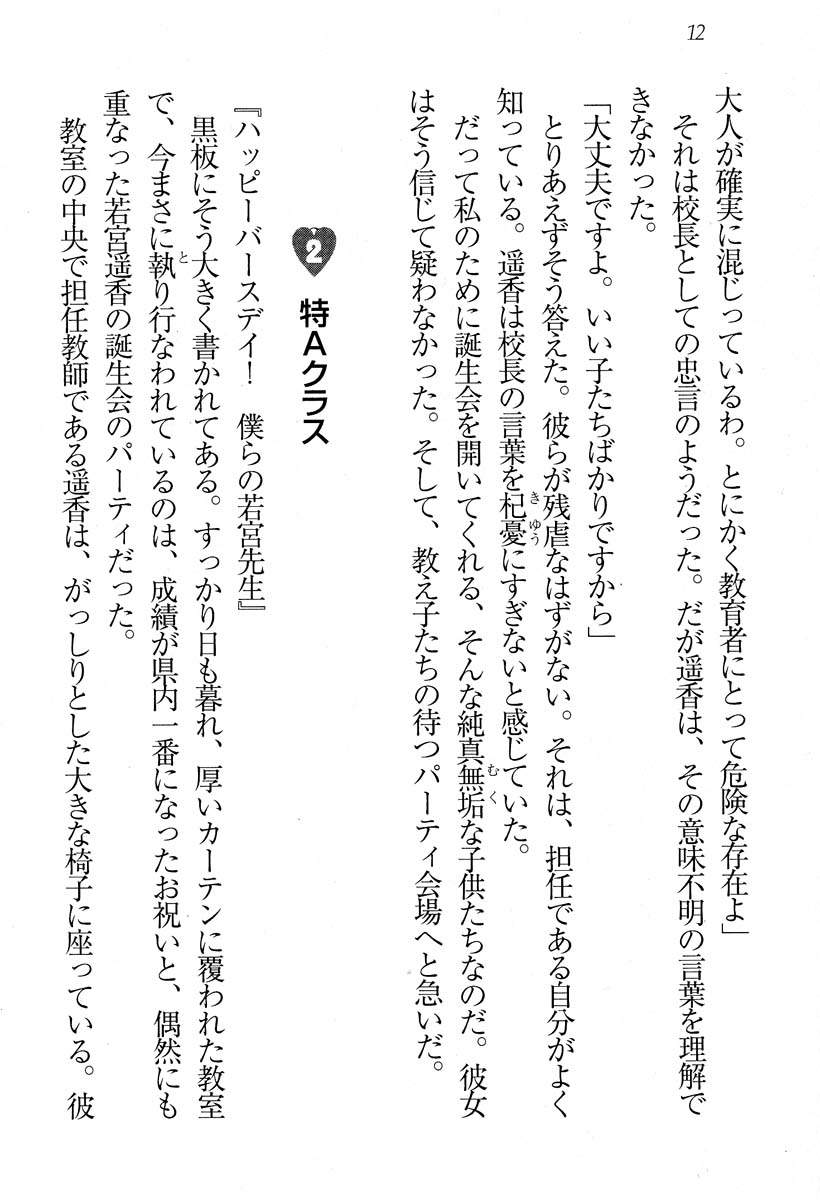 12
大人が確実に混じっているわ。とにかく教育者にとって危険な存在よ」
　それは校長としての忠言のようだった。だが遥香は、その意味不明の言葉を理解で
きなかった。
「大丈夫ですよ。いい子たちばかりですから」
　とりあえずそう答えた。彼らが残虐なはずがない。それは、担任である自分がよく
知っている。遥香は校長の言葉を杞憂にすぎないと感じていた。
　だって私のために誕生会を開いてくれる、そんな純真無垢な子供たちなのだ。彼女
はそう信じて疑わなかった。そして、教え子たちの待つパーティ会場へと急いだ。
2 特Aクラス
『ハッピーバースデイ！　僕らの若宮先生』
　黒板にそう大きく書かれてある。すっかり日も暮れ、厚いカーテンに覆われた教室
で、今まさに執り行なわれているのは、成績が県内一番になったお祝いと、偶然にも
重なった若宮遥香の誕生会のパーティだった。
　教室の中央で担任教師である遥香は、がっしりとした大きな椅子に座っている。彼